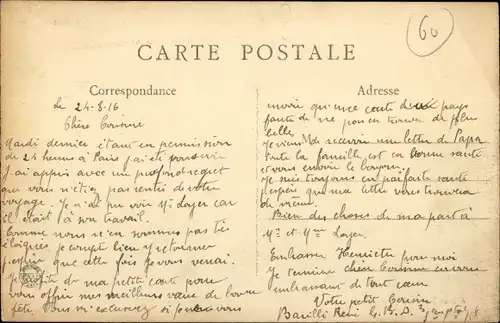 60
CARTE POSTALE
Correspondance
Adresse
le 24-8-16
Chère Cousine
Mardi dernier étant en permission
de 24 heures à Paris j'ai été pour
J'ai appris avec un profond regret
que vous n'étiez pas rentrée de votre
voyage. Je n'ai pu voir Mr Layer car
il était à son travail.
Comme nous n'en sommes pas très
éloignés je compte bien y retourner
j'espère que cette fois je vous verrai.
Je profite de ma petite carte pour
vous offrir mes meilleurs vœux de bonne
fête. Vous m'excuserez si je ne vous
envoie qu'une carte de pays
faute de ne pas en trouver de plus
belle
Je viens de recevoir une lettre de Papa
toute la famille est en bonne santé
et vous envoie le bonjour.
Je suis toujours en parfaite santé
j'espère que ma lettre vous trouvera
de même.
Bien des choses de ma part à
Mr et Mme Layer.
Embrasser Henriette pour moi
Je termine chère Cousine en vous
embrassant de tout cœur
Votre petit Cousin
René G. B. D.